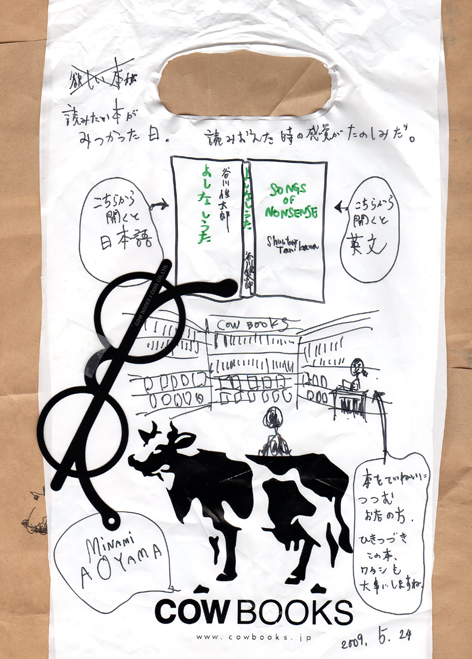 欲しい本が
読みたい本が
みつかった日。
読みおえた時の感覚がたのしみだ。
こちらから
開くと
日本語
よしなしうた
谷川俊太郎
よしなしうた
谷川俊太郎
SONGS
OF
NONSENSE
Shuntaro
Tanikawa
こちらから
開くと
英文
COW BOOKS
本をていねいに
つつむ
お店の方.
ひきつづき
この本、
ワタシも
大事にしますね.
MINAMI
AOYAMA
COW BOOKS
www.cowbooks.jp
2009. 5. 24